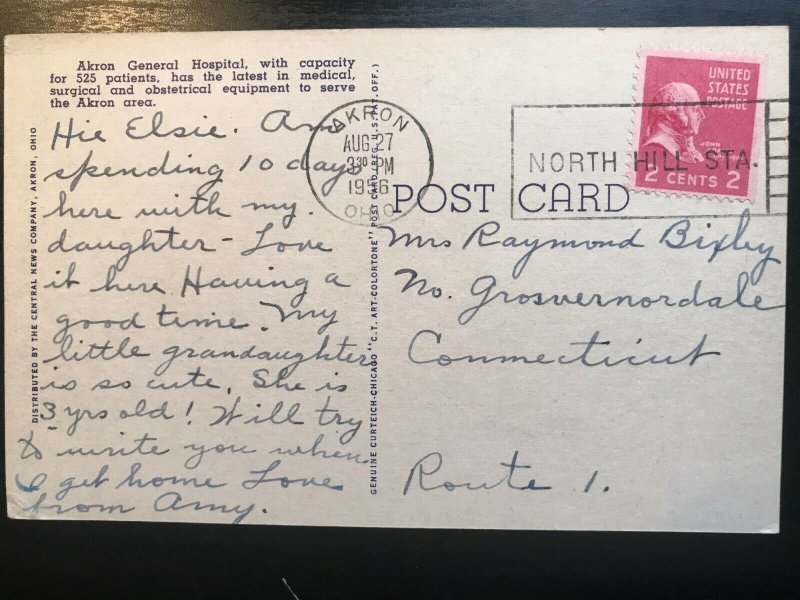 Akron General Hospital, with capacity
for 525 patients, has the latest in medical,
surgical and obstetrical equipment to serve
the Akron area.
Hie Elsie. Am
spending 10 days
here with my
daughter - Love
it here Having a
good time. My
little grandaughter
is so cute. She is
3 yrs old! Will try
to write you when
I get home Love
from Amy.
DISTRIBUTED BY THE CENTRAL NEWS COMPANY, AKRON, OHIO
GENUINE CURTEICH-CHICAGO "C.T. ART-COLORTONE" POST CARD (REG. U.S. PAT. OFF.)
AKRON
AUG 27
3 30 PM
1956
OHIO
NORTH HILL STA.
UNITED
STATES
POSTAGE
JOHN
2 CENTS 2
POST CARD
Mrs Raymond Bixby
No. Grosvernordale
Connecticut
Route 1.